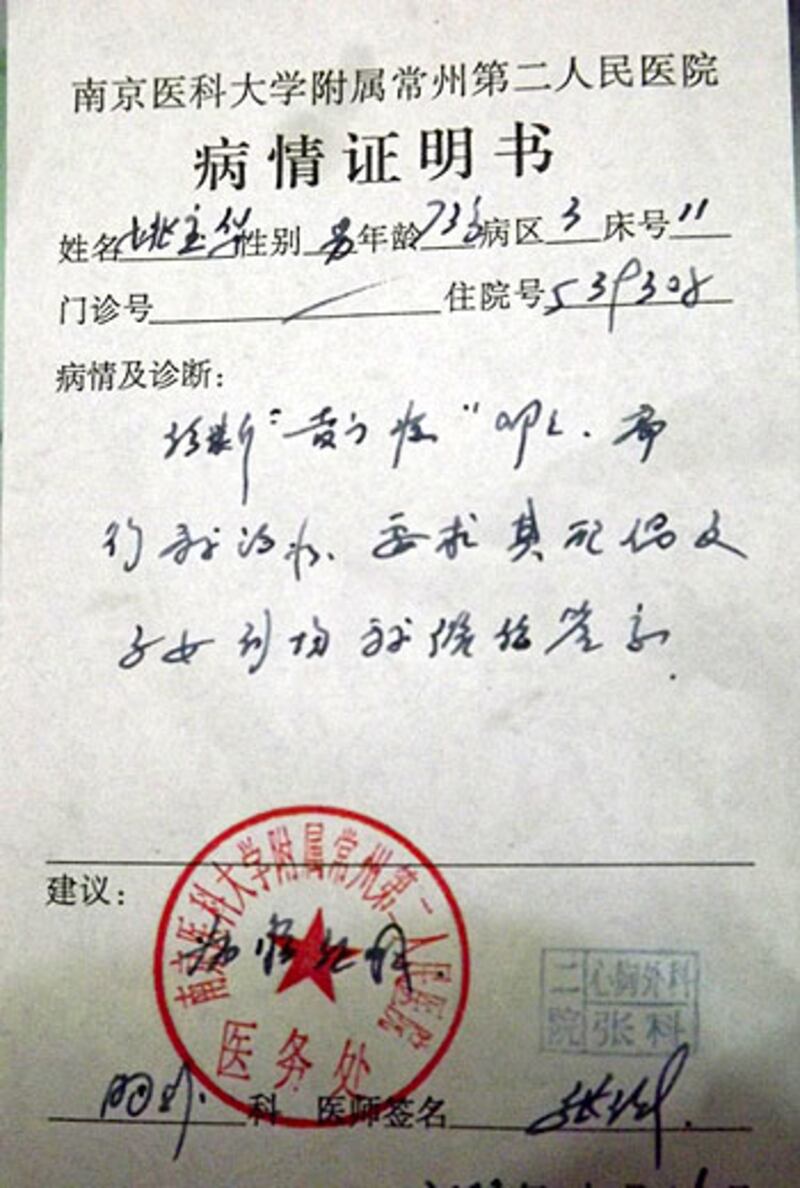 南京医科大学附属常州第二人民医院
病情证明书
姓名 姚宝华 性别 男 年龄 73岁 病区 3 床号 11
门诊号 住院号 539308
病情及诊断：
诊断“贲门癌”明确. 需
行手术治疗. 要求其配偶及
子女到场 手术签字
建议：
病情证明
南京医科大学附属常州第二人民医院
医务处
二院 心胸外科
张科
胸外 科 医师签名 张科